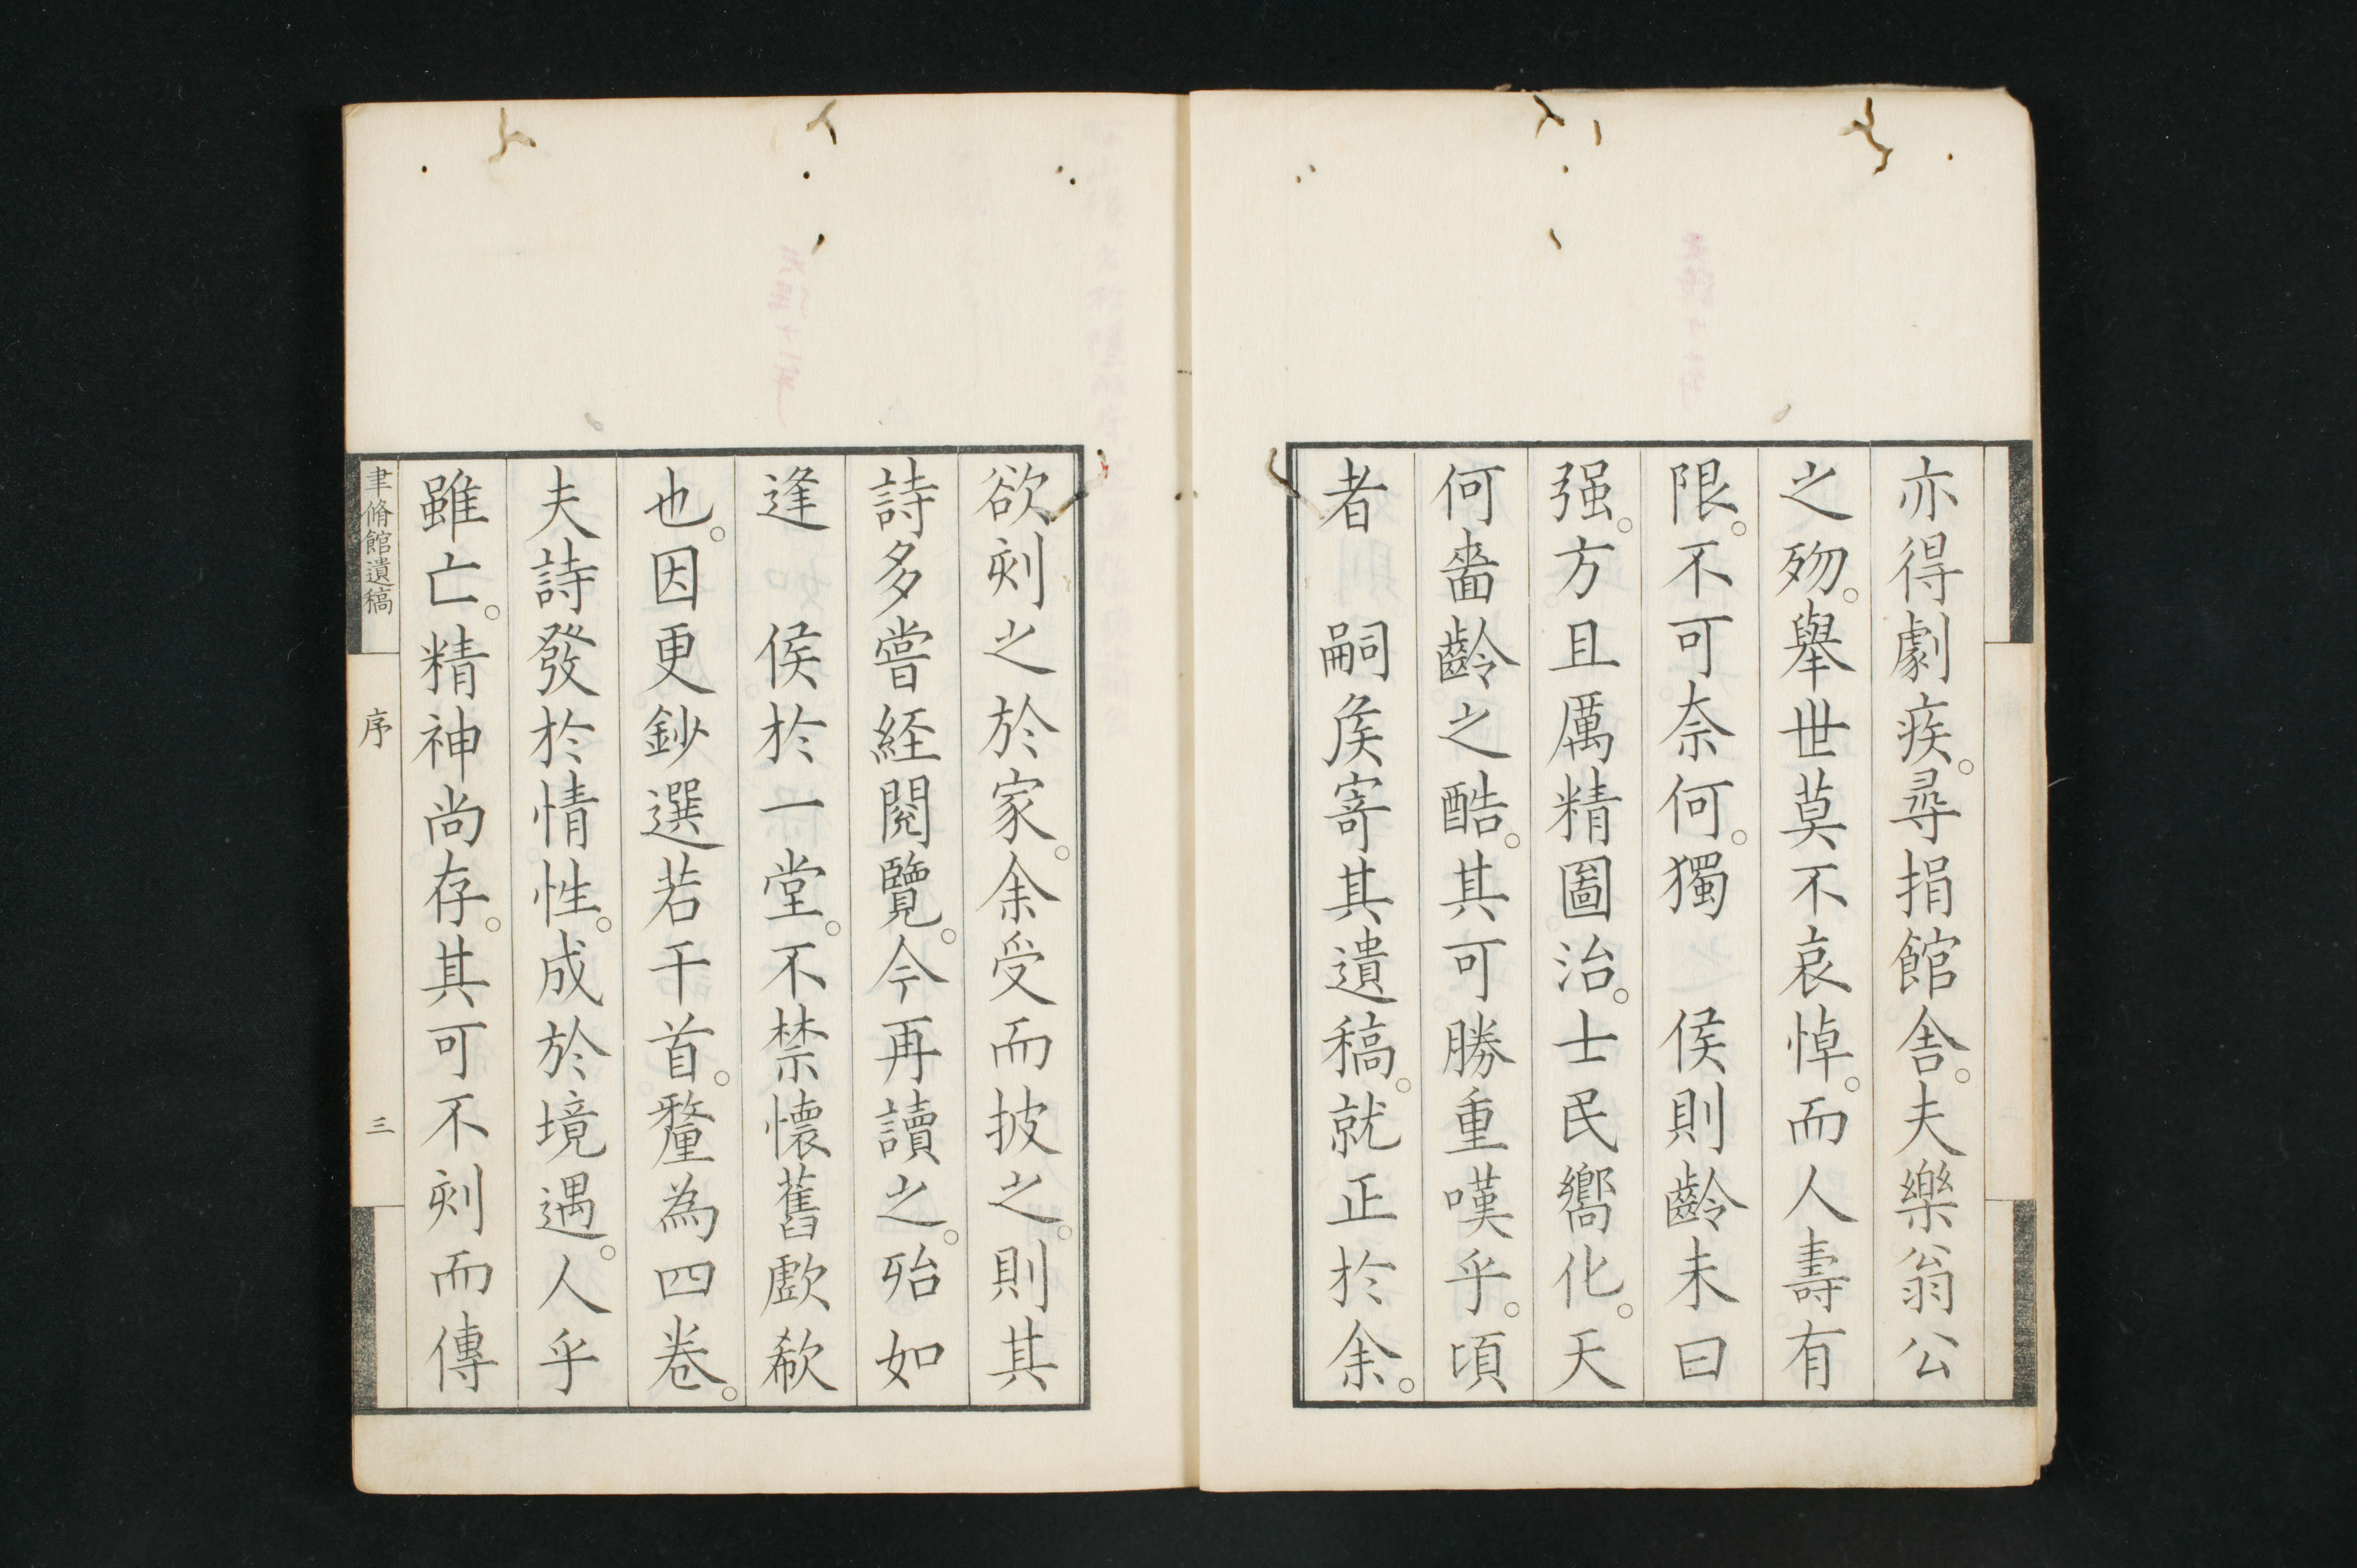 亦得劇疾。尋捐館舎。夫樂翁公
之歾。舉世莫不哀悼。而人壽有
限。不可奈何。獨　侯則齡未曰
强。方且厲精圖治。士民嚮化。天
何嗇齡之酷。其可勝重嘆乎。頃
者　嗣矦寄其遺稿。就正於余。
欲刻之於家。余受而披之。則其
詩多嘗経閱覽。今再讀之。殆如
逢　侯於一堂。不禁懷舊歔欷
也。因更鈔選若干首。釐為四卷。
夫詩發於情性。成於境遇。人乎
雖亡。精神尚存。其可不刻而傳
脩館遺稿
序
三